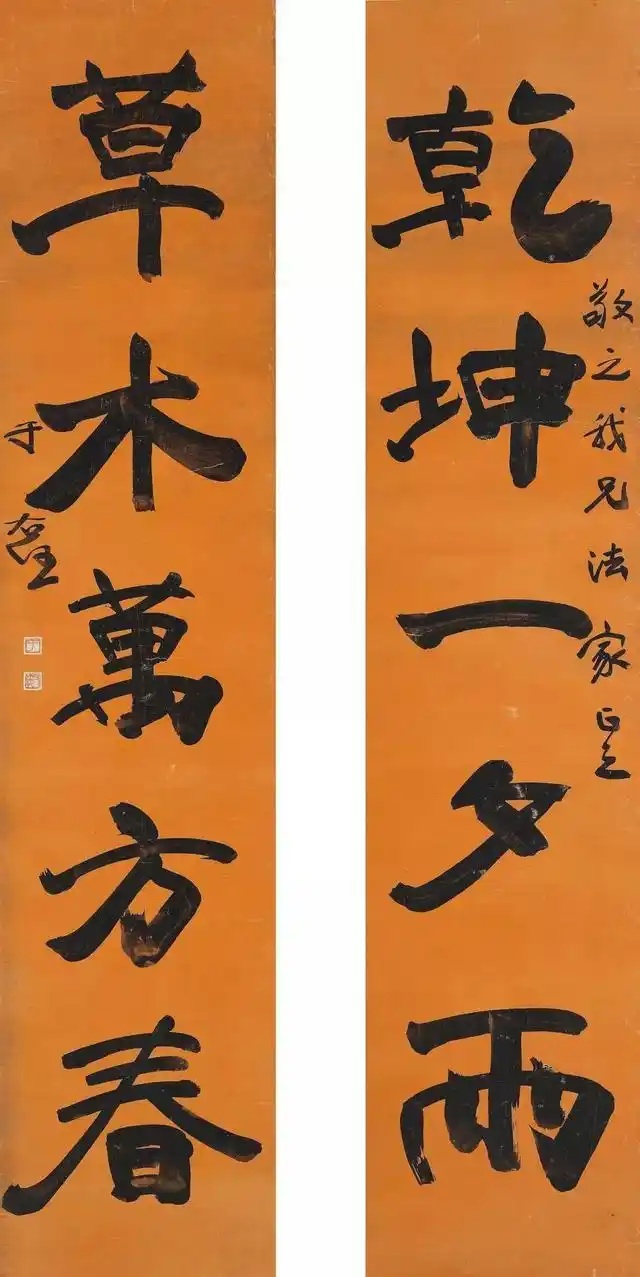 敬之我兄法家正之
乾坤一夕雨
草木萬方春
于右任